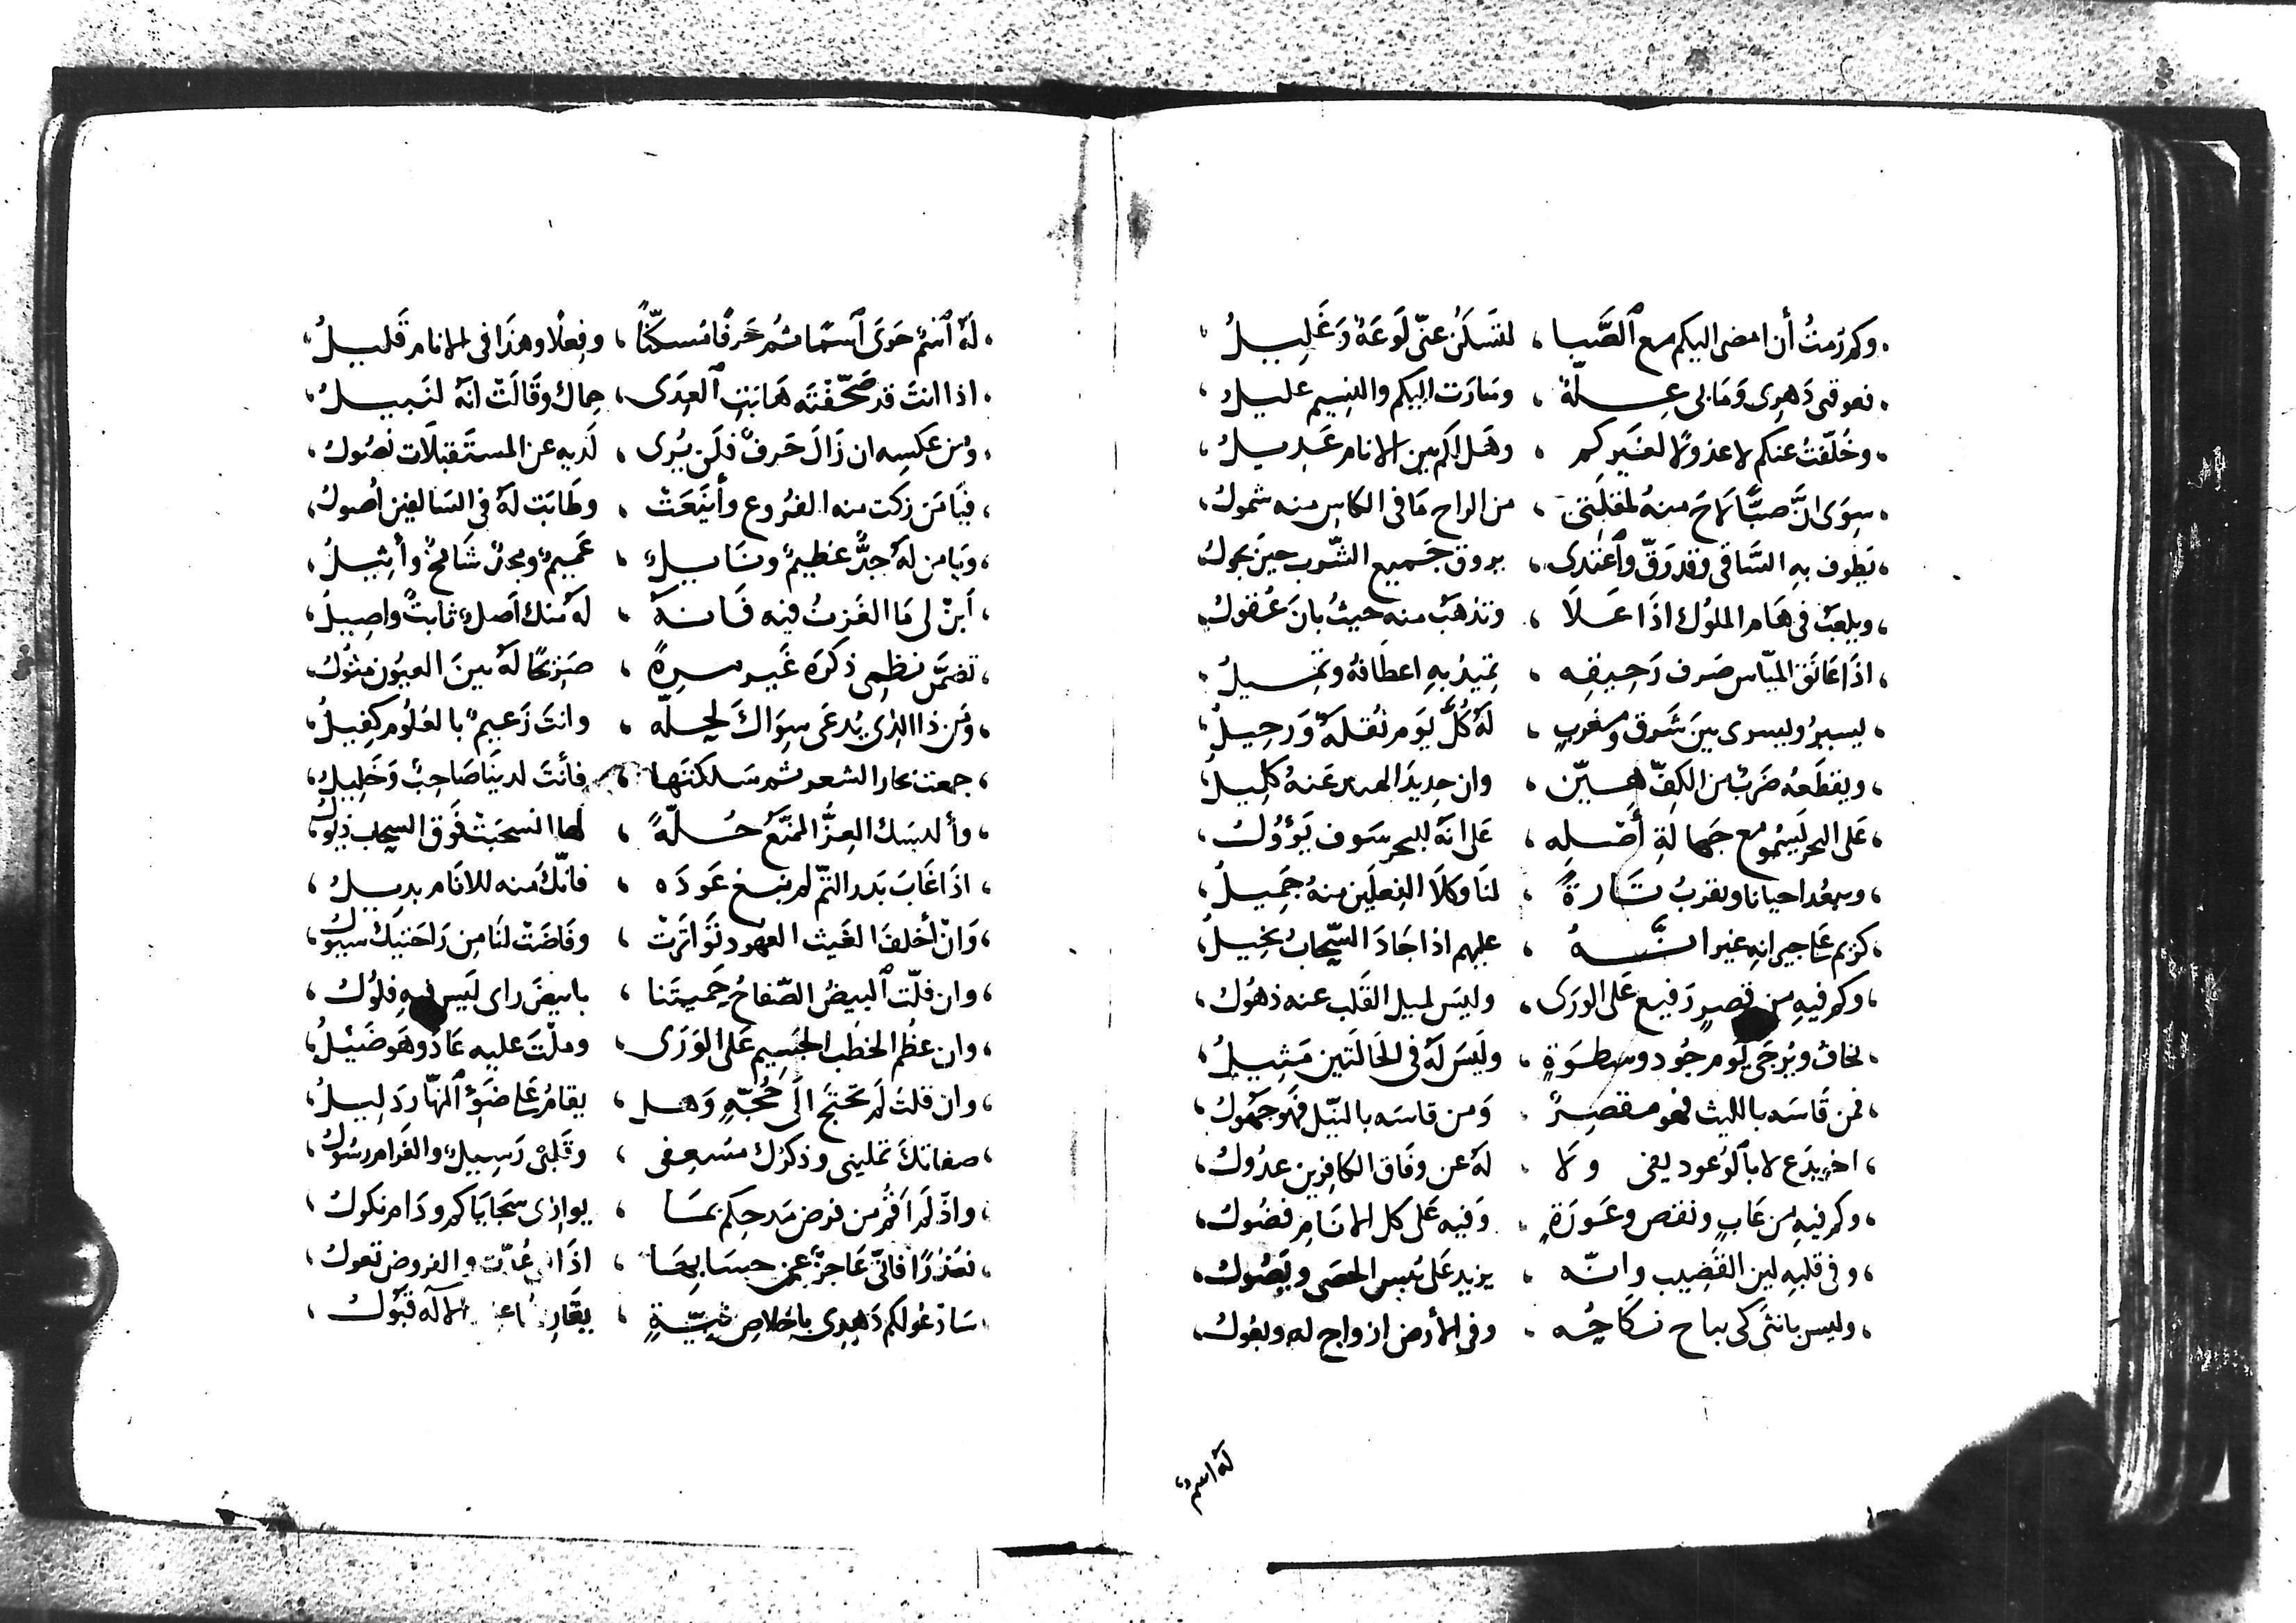 وكم رُمتُ أن امضى اليكم مع ٱلصَّبا ، لتَسكَن عنّى لَوعَةٌ وَغَلِيـلُ
فعوقنى دَهرى وَمَا بى عِـلّةٌ ، وسَارَت اليكم والنسِيم عليـلُ
وخُلّفتُ عنكم لا عدولًا لغَيركم ، وهَل لكم بين الانام عَدِيـلُ
سِوَى انَّ صبًّا لاحَ منهُ لمقلَتى ، من الراح مَا فى الكاس منه شمولُ
يَطوف بهِ السَّاقى وقد رَقّ وٱغتدى ، يروق جَميع الشّرب حينَ يجولُ
ويلعَبُ فى هَام الملوُك اذَا عَلَا ، وتذهَبُ منه حيثُ بانَ عُقولُ
اذَا عَانَقَ الميّاس صَرف رَحِيقِه ، تميدُ بهِ اعطَافهُ وتميـلُ
يسيرُ ويسرى بينَ شَرق ومغربٍ ، لهُ كُلَّ يَوم نُقلَةٌ وَرحِيلُ
ويقطَعُه ضَربٌ من الكفّ هـيّن ، وان حديدَ الهند عَنهُ كليلُ
عَلى البحر يَسْمُو مع جَهالةِ أصْله ، عَلى انهُ للبحر سَوف يَؤوُلُ
ويبعُد احيانا ويقربُ تَارةً ، لنَا وكلَا الفِعلَين منهُ جَمِيلُ
كريم عَلى جيرانهِ غير انَّـهُ ، عليهم اذا جَادَ السّحَابُ بخيلُ
وكم فيهِ من قصرٍ رَفيع عَلى الورَى ، وليسَ لميل القَلب عنه ذهوُلُ
يخافُ ويُرجَى يَوم جُود وسطوَةٍ ، ولَيسَ لَهُ فى الحَالَتين مَثِيلُ
فمن قَاسَه بالليث فهو مقصِرٌ ، وَمن قاسَه بالنّيل فَهو جَهُولُ
اخٌ يدَّع لا بالوُعود يفى ولَا ، لهُ عن وفَاق الكافِرين عدُولُ
وكم فيهِ من عَابٍ ونقص وعَورَةٍ ، وَفيه عَلى كل الانَامِ فضُولُ
وفى قلبهِ لين القَضِيب وانّه ، يزيد عَلى يُبس الحصَى ويَصُولُ
وليس بانثى كى يباح نكاحُه ، وفى الأرض ازواج له وبعُولُ
لهُ اسمٌ
لَهُ ٱسمٌ حَوَى ٱسمًا ثم حَرفًا مُسكّنًا ، وفِعلًا وهذَا فى الانام قَليلُ
اذا انتَ قد صَحّفْتَه هَابَتِ ٱلعِدَى ، حِماك وقَالَتْ انهُ لنَبيـلُ
ومن عَكسِه ان زَالَ حَرفٌ فلَن يُرى ، لَديهِ عن المستَقبلَات نُصُولُ
فيَا مَن زكَت منه الفرُوع وأينَعَتْ ، وطَابَت لَهُ فى السَالفين اُصولُ
وَيا من لَهُ جدٌّ عَظيمٌ ونَايـلٌ ، عَميمٌ ومجدٌ شَامخٌ وأثِيلُ
اَبنْ لى مَا الغَزتُ فيه فَانـهُ ، لهُ منك اَصلٌ ثابتٌ واصِيلُ
تضمَّن نظمى ذكرَه غَير مـرةٍ ، صَرِيحًا لَهُ بينَ العيوُن مثوُلُ
ومَن ذا الذى يُدعَى سِوَاكَ لحلّه ، وانتَ زَعيمٌ بالعُلُوم كفِيلُ
جمعت بحار الشعر ثم سَلكتَها ، فأنتَ لدينَا صَاحِبٌ وَخَلِيلُ
وألبسَك العِزُّ الممَنَّعُ حُلّةً ، لها انسحَبَتْ فَوق السحاب ذيوُلُ
اذَا غَابَ بَدر التمّ لم نبغ عَودَه ، فانّك منه للانَام بديلُ
وَانْ أخلفَ الغَيث العهود تَوَاتَرَتْ ، وفَاضَتْ لنَا مِن رَاحَتيكَ سيوُلُ
وان فلّت ٱلبيضُ الصّفاحُ حَميتَنا ، بابيضَ راى لَيس فيهِ فلوُلُ
وان عظُم الخطُب الجَسيم عَلى الوَرَى ، وملْتَ عليهِ عَادَ وهو ضَئيلُ
وان قلتَ لَم تحتَج الَى حُجّةٍ وَهـل ، يقامُ عَلى ضَوْءِ ٱلنهّار دَليلُ
صفاتكَ تملينى وذكرُك مُسعِفى ، وقَلبى رَسِيلٌ والغَرام رسُولُ
واذْ لَم اَقُم من فرض مَدحِكم بمَا ، يوازى سَجَايَاكم ودَام نكولُ
فعُذرًا فانّى عَاجزٌ عن حسَابِهَا ، اذَا عُدّت والفروض تعولُ
سَادعُو لكم دَهرى باخلاصِ نيّةٍ ، الآله قبُولُ